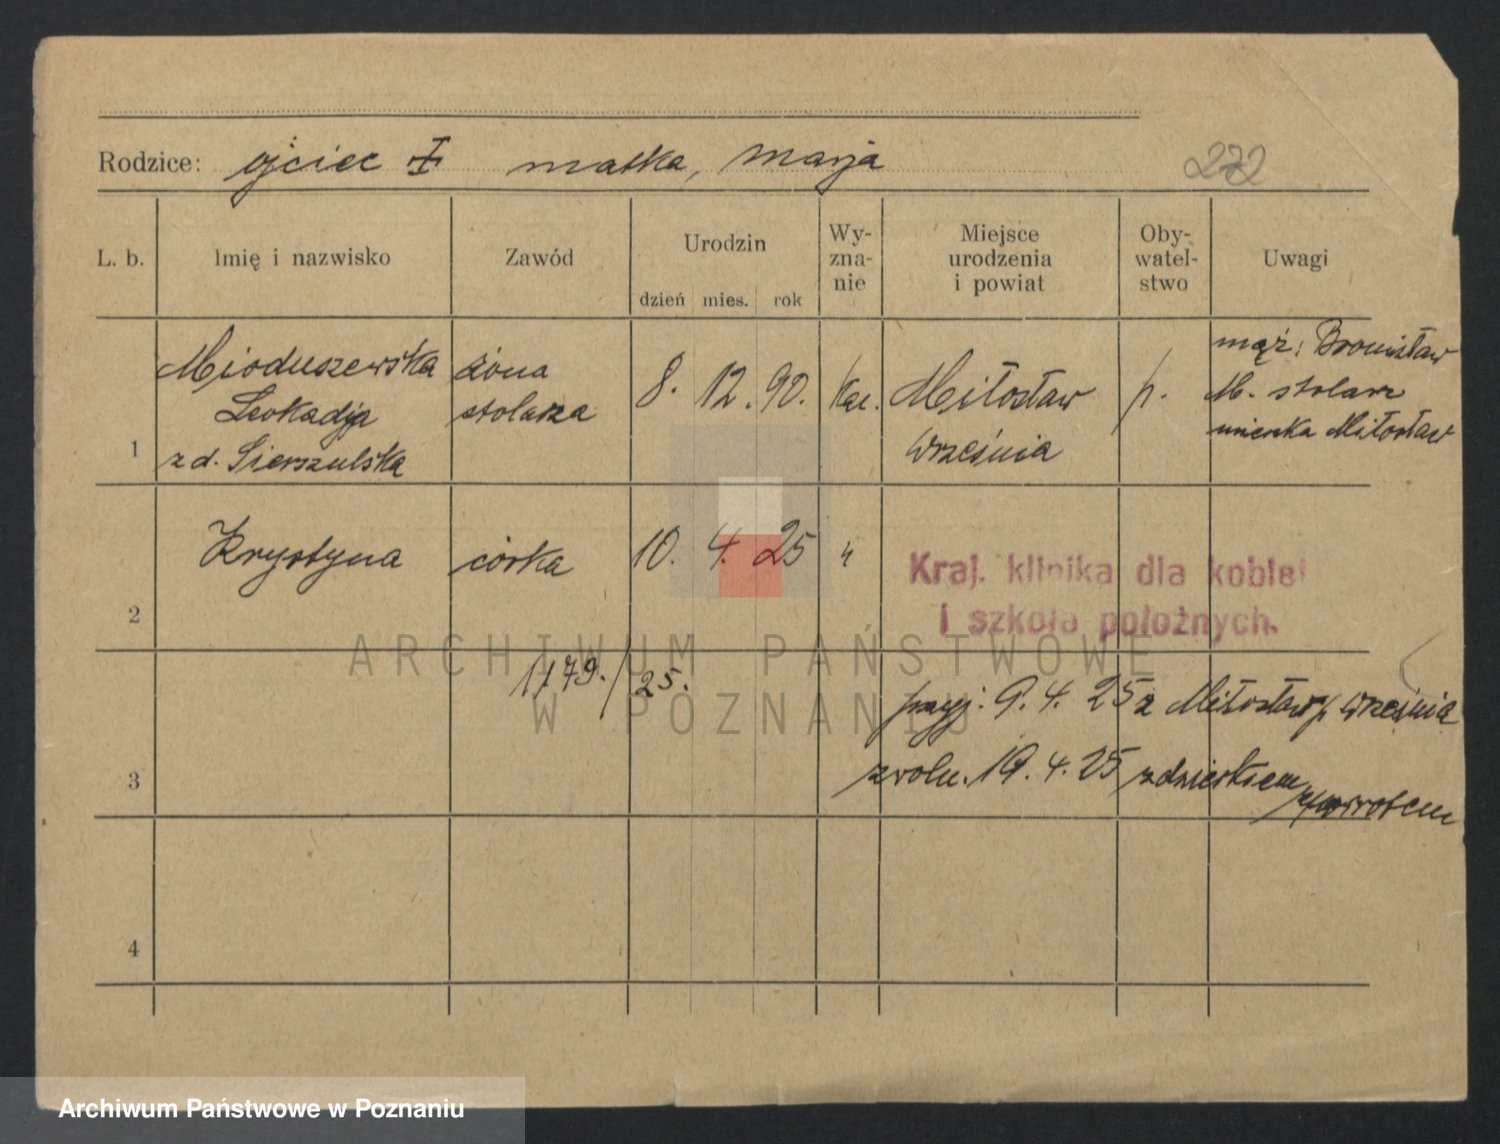 Rodzice: ojciec ‡ matka, Marja 272
L. b. Imię i nazwisko Zawód Urodzin dzień mies. rok Wy-zna-nie Miejsce urodzenia i powiat Oby-watel-stwo Uwagi
1 Mioduszewska żona 8. 12. 90. kat. Miłosław p. mąż: Bronisław
Leokadja stolarza Września M. stolarz
z d. Sierszulska mieszka Miłosław
2 Krystyna córka 10. 4. 25 "
Kraj. klinika dla kobiet
i szkoła położnych.
1179./25.
3 przyj. 9. 4. 25 z Miłosław p/ Września
zwoln. 19. 4. 25 z dzieckiem
z powrotem
4
ARCHIWUM PAŃSTWOWE
W POZNANIU
Archiwum Państwowe w Poznaniu